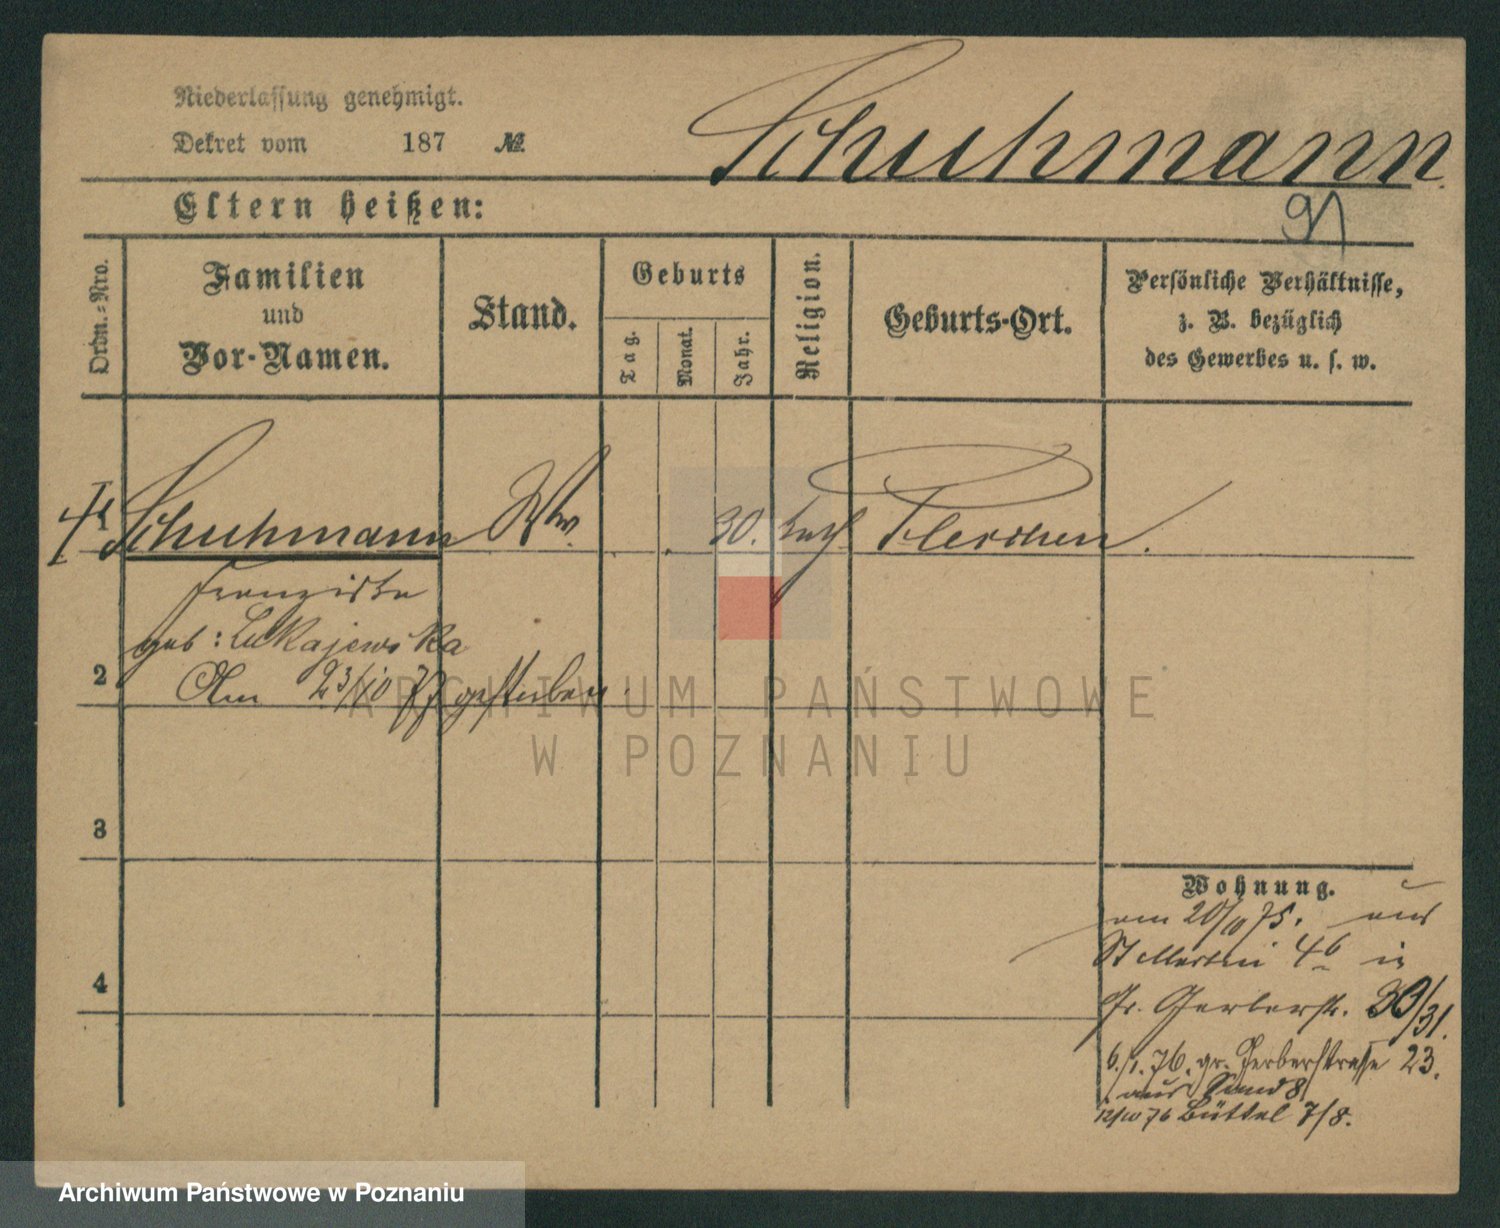 Niederlassung genehmigt.
Dekret vom 187 №
Schuhmann
Eltern heißen:
91
Ordn.-Nro.
Familien
und
Vor-Namen.
Stand.
Geburts
Tag.
Monat.
Jahr.
Religion.
Geburts-Ort.
Persönliche Verhältnisse,
z. B. bezüglich
des Gewerbes u. s. w.
Schuhmann Ww. 30. kath Pleschen.
Franziska
geb: Lukajewska
2
Am 23/10 77 gestorben.
3
4
Wohnung.
am 20/11 75. aus
St Martin 4b in
Gr. Gerberstr. 30/31.
6/1. 76. gr. Gerberstrasse 23.
aus Sand 8
12/10 76 Büttel 7/8.
ARCHIWUM PAŃSTWOWE
W POZNANIU
Archiwum Państwowe w Poznaniu